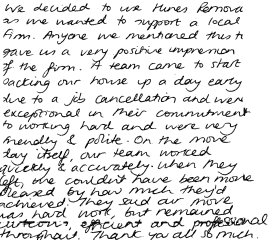 We decided to use Hunts Removals
as we wanted to support a local
firm. Anyone we mentioned this to
gave us a very positive impression
of the firm. A team came to start
packing our house up a day early
due to a job cancellation and were
exceptional in their commitment
to working hard and were very
friendly & polite. On the move
day itself, our team worked
quickly & accurately. When they
left, we couldn't have been more
pleased by how much they'd
achieved. They said our move
was hard work, but remained
courteous, efficient and professional
throughout. Thank you all so much.